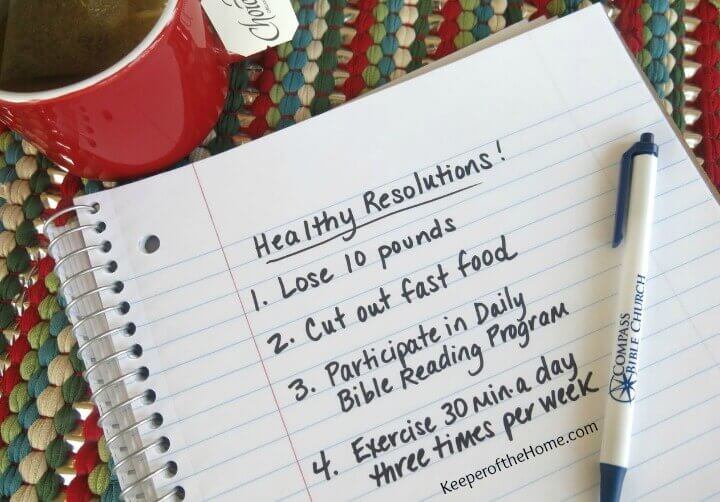 Choice
Healthy Resolutions!
1. Lose 10 pounds
2. Cut out fast food
3. Participate in Daily
Bible Reading Program
4. Exercise 30 min. a day
three times per week
KeeperoftheHome.com
COMPASS
BIBLE CHURCH